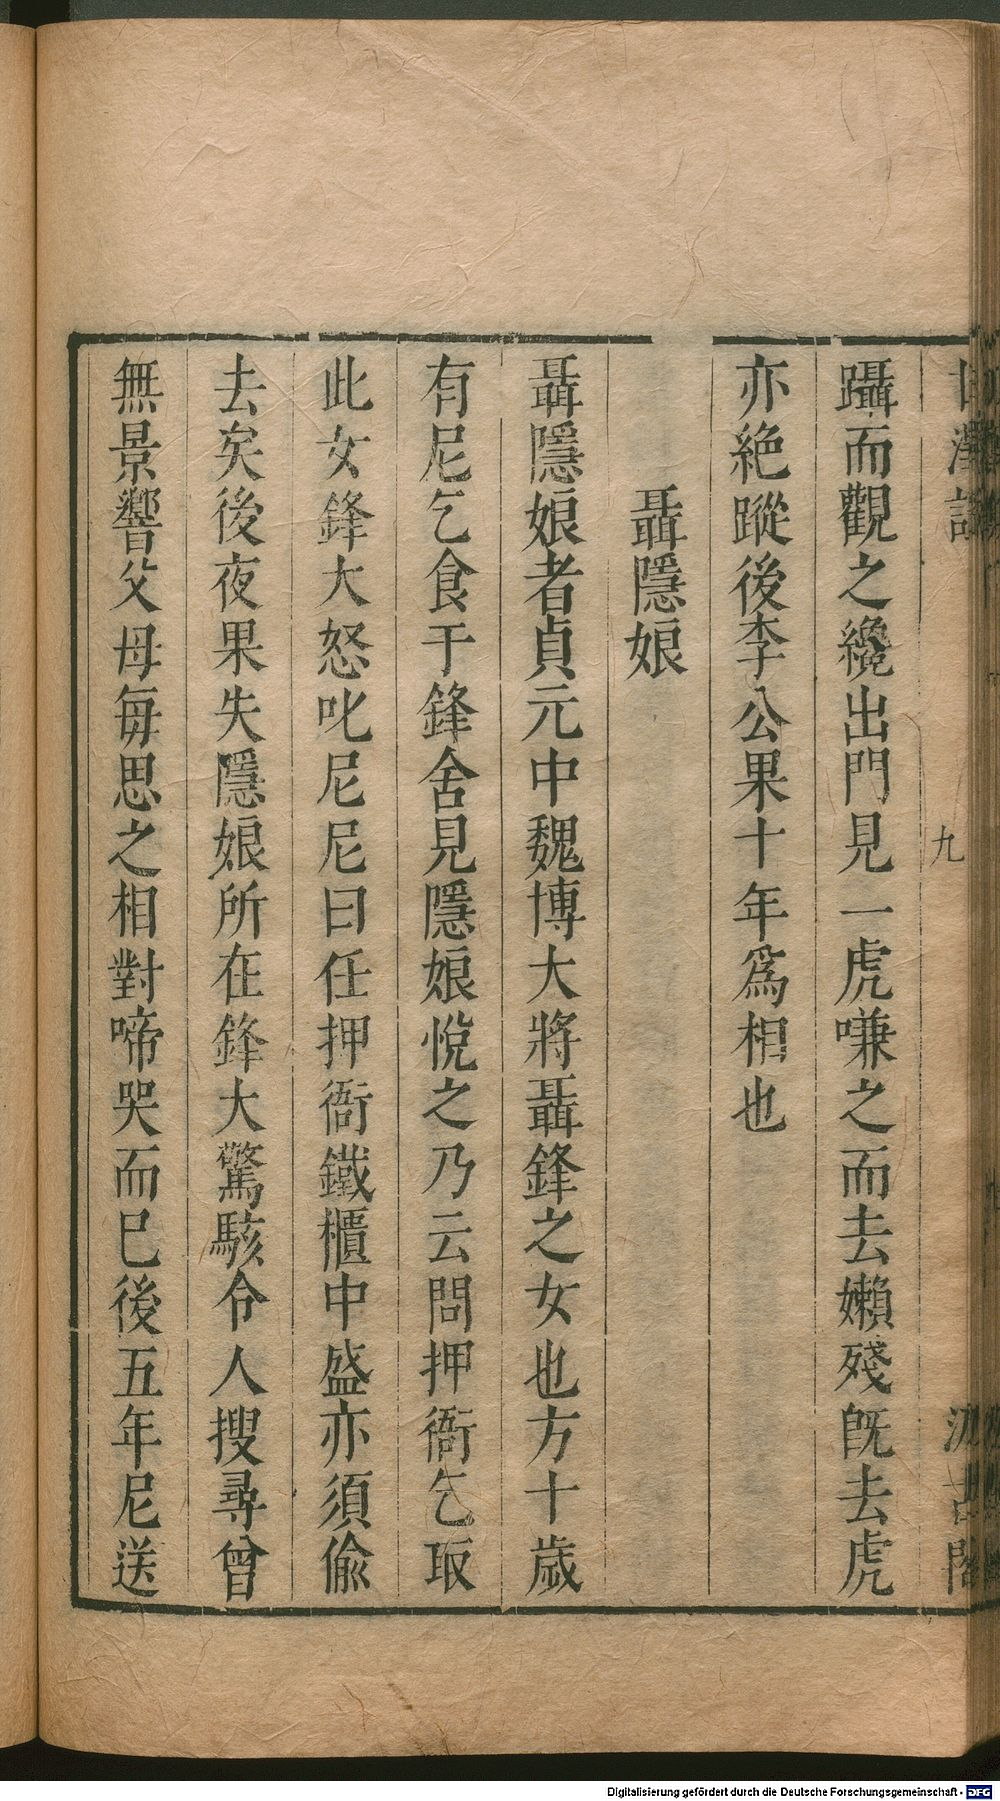 甘澤謠
九
汲古閣
躡而觀之纔出門見一虎嗛之而去嬾殘旣去虎
亦絕蹤後李公果十年爲相也
聶隱娘
聶隱娘者貞元中魏博大將聶鋒之女也方十歲
有尼乞食于鋒舍見隱娘悅之乃云問押衙乞取
此女鋒大怒叱尼尼曰任押衙鐵櫃中盛亦須偸
去矣後夜果失隱娘所在鋒大驚駭令人搜尋曾
無景響父母每思之相對啼哭而已後五年尼送
Digitalisierung gefördert durch die Deutsche Forschungsgemeinschaft - DFG